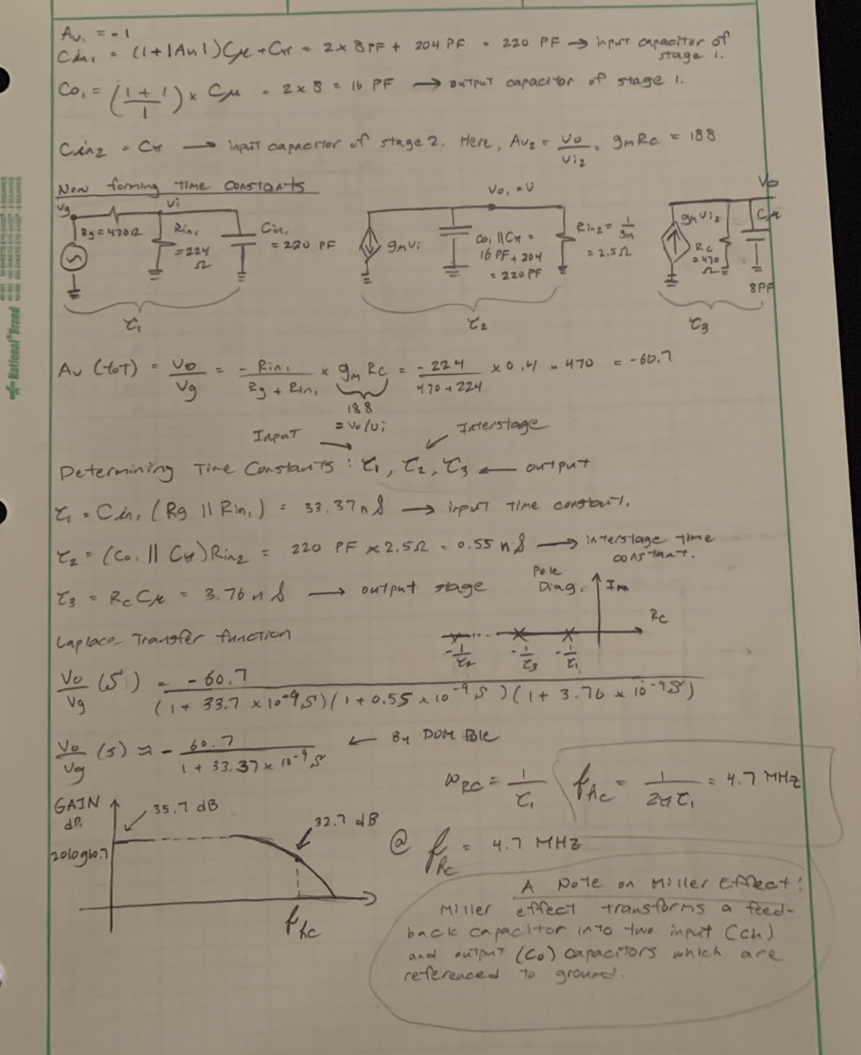 Av₁ = -1
Cin₁ = (1+|Av|) Cμ + Cπ = 2 × 8 PF + 204 PF = 220 PF → input capacitor of stage 1.
Co₁ = (1+1/1) × Cμ = 2 × 8 = 16 PF → output capacitor of stage 1.
Cin₂ = Cπ → input capacitor of stage 2. Here, Av₂ = Vo/Vi₂ = gmRc = 188
Now forming time constants
Vg
Vi
Vo₁ = V
Vo
Rg=470Ω
Rin₁ = 224 Ω
Cin₁ = 220 PF
gmVi
Co₁ || Cπ = 16 PF + 204 = 220 PF
Rin₂ = 1/gm = 2.5Ω
gmVi₂
Rc = 470 Ω
Cμ
8PF
τ₁
τ₂
τ₃
Av (tot) = Vo/Vg = -Rin₁/(Rg + Rin₁) × gm Rc = -224/(470+224) × 0.4 × 470 = -60.7
188
= Vo/Vi
Input → Interstage
Determining Time Constants : τ₁, τ₂, τ₃ ← output
τ₁ = Cin₁ (Rg || Rin₁) = 33.37 nS → input time constant.
τ₂ = (Co₁ || Cπ) Rin₂ = 220 PF × 2.5Ω = 0.55 nS → interstage time constant.
τ₃ = Rc Cμ = 3.76 nS → output stage
Pole Diag.
Im
Re
-1/τ₂ -1/τ₃ -1/τ₁
Laplace Transfer function
Vo/Vg (S) = -60.7/((1 + 33.7 × 10⁻⁹S)(1 + 0.55 × 10⁻⁹S)(1 + 3.76 × 10⁻⁹S))
Vo/Vg (s) ≈ - 60.7/(1 + 33.37 × 10⁻⁹S) ← By DOM Pole
ωRC = 1/τ₁
fAc = 1/(2πτ₁) = 4.7 MHz
GAIN dB
35.7 dB
32.7 dB
20log60.7
fhc
@ fhc = 4.7 MHz
A Note on Miller Effect:
Miller effect transforms a feed-
back capacitor into two input (Cin)
and output (Co) capacitors which are
referenced to ground.
National Brand